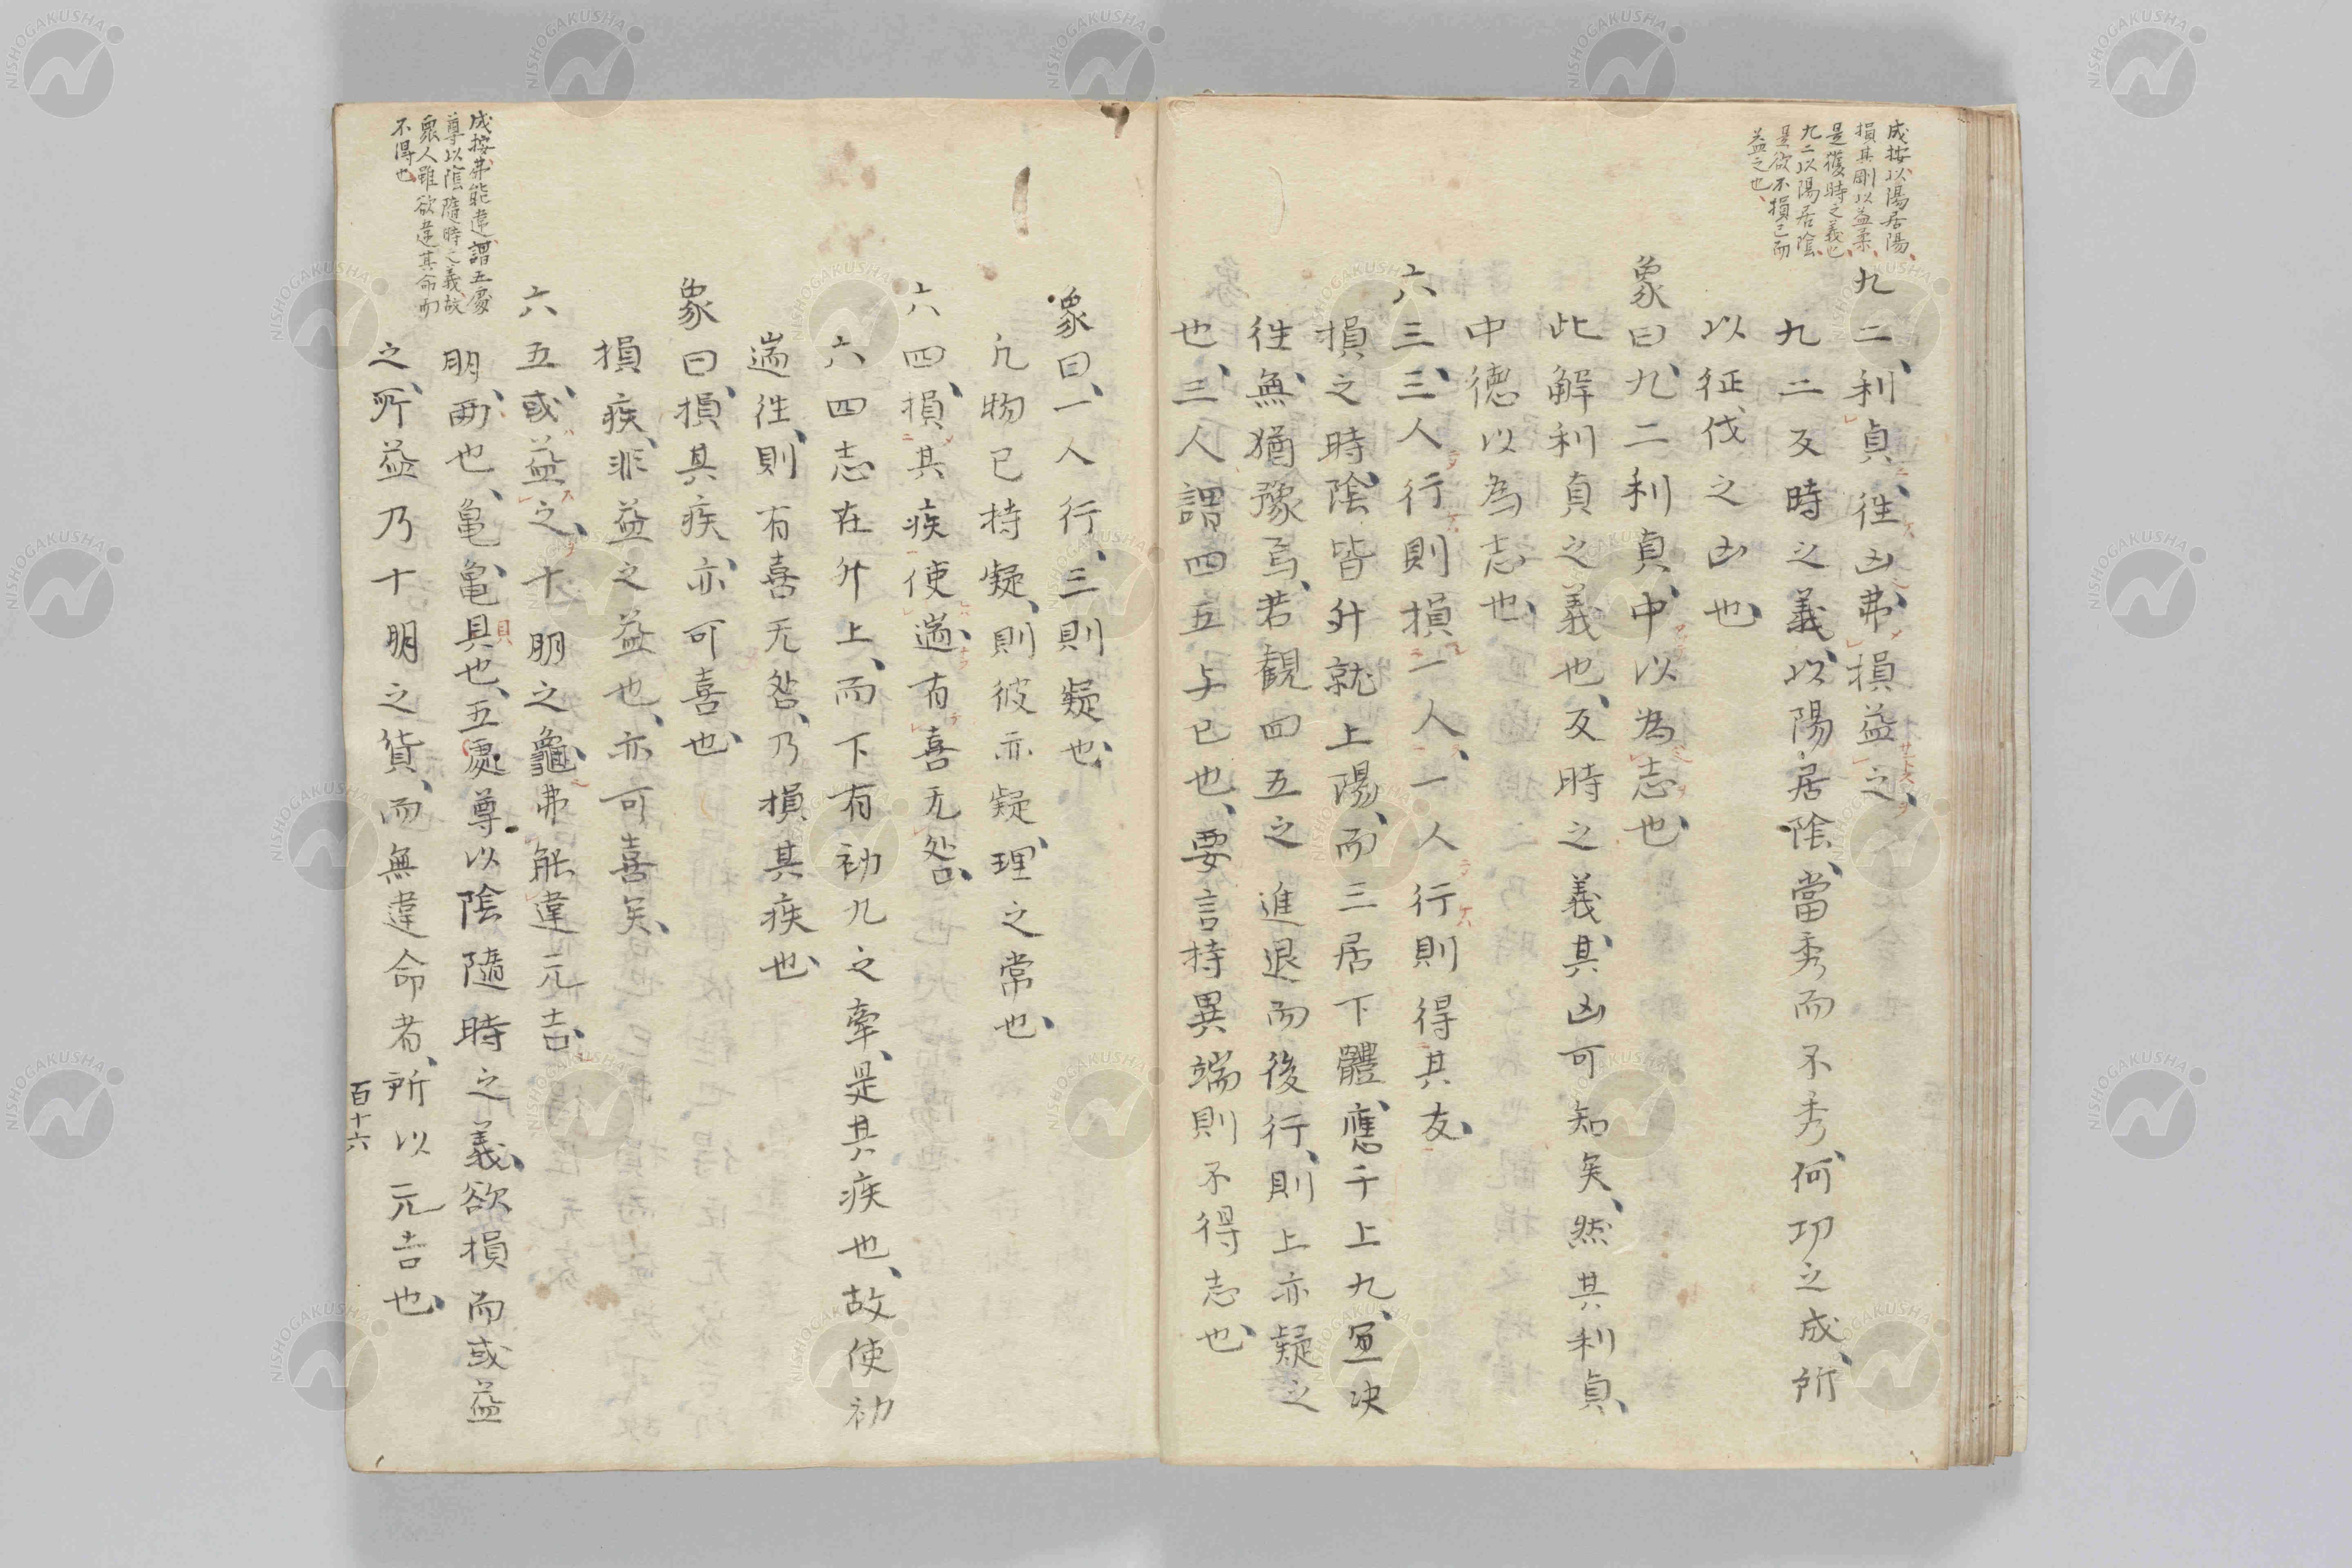 成按以陽居陽、
損其剛以益柔、
是獲時之義也、
九二以陽居陰、
是欲不損己而
益之也、
九二、利貞、往凶、弗損益之、
九二反時之義、以陽居陰、當秀而不秀、何功之成、所
以征伐之凶也、
象曰、九二利貞、中以為志也、
此解利貞之義也、反時之義、其凶可知矣、然其利貞、
中德以為志也、
六三、三人行則損一人、一人行則得其友、
損之時、陰皆升就上陽、而三居下體、應于上九、宜決
往、無猶豫焉、若觀四五之進退而後行、則上亦疑之
也、三人謂四五与已也、要言持異端則不得志也、
象曰、一人行、三則疑也、
凡物已持疑、則彼亦疑、理之常也、
六四、損其疾、使遄、有喜、无咎、
六四志在升上、而下有初九之牽、是其疾也、故使初
遄往、則有喜无咎、乃損其疾也、
象曰、損其疾、亦可喜也、
損疾、非益之益也、亦可喜矣、
六五、或益之、十朋之龜、弗能違、元吉、
朋、両也、亀、亀具也、五處尊以陰、隨時之義、欲損而或益
之、所益乃十朋之貨、而無違命者、所以元吉也、
成按弗能違、謂五處
尊以陰隨時之義、故
衆人雖欲違其命而
不得也、
百十六
貝
NISHOGAKUSHA